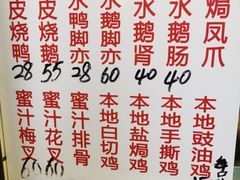 皮烧鸭
28
皮烧鹅
55
水鸭脚亦
28
水鹅脚亦
60
水鹅肾
40
水鹅肠
40
焗凤爪
蜜汁梅叉
蜜汁花叉
蜜汁排骨
本地白切鸡
本地盐焗鸡
本地手撕鸡
本地豉油鸡